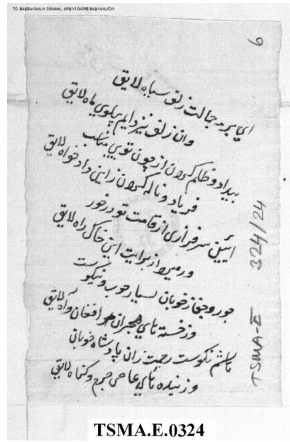 TC BAŞBAKANLIK OSMANLI ARŞİVİ DAİRE BAŞKANLIĞI
6
ای بر مه جمالت زلف سیاه لایق
وان زلف نیز دایم پهلوی ماه لایق
بیداد و ظلم کردن از چون تویی
فریاد و ناله کردن زاین دادخواه لایق
آیین سرفرازی از قامت تو در خور
از برایت این خاک راه لایق
جور و جفا ز خوبان بسیار خوب و نیکوست
وز خسته‌ای هجران افغان و آه لایق
نیکوست رحمت زان پادشاه خوبان
وز بنده‌ای عاصی جرم و گناه لایق
TSMA-E 324/24
TSMA.E.0324